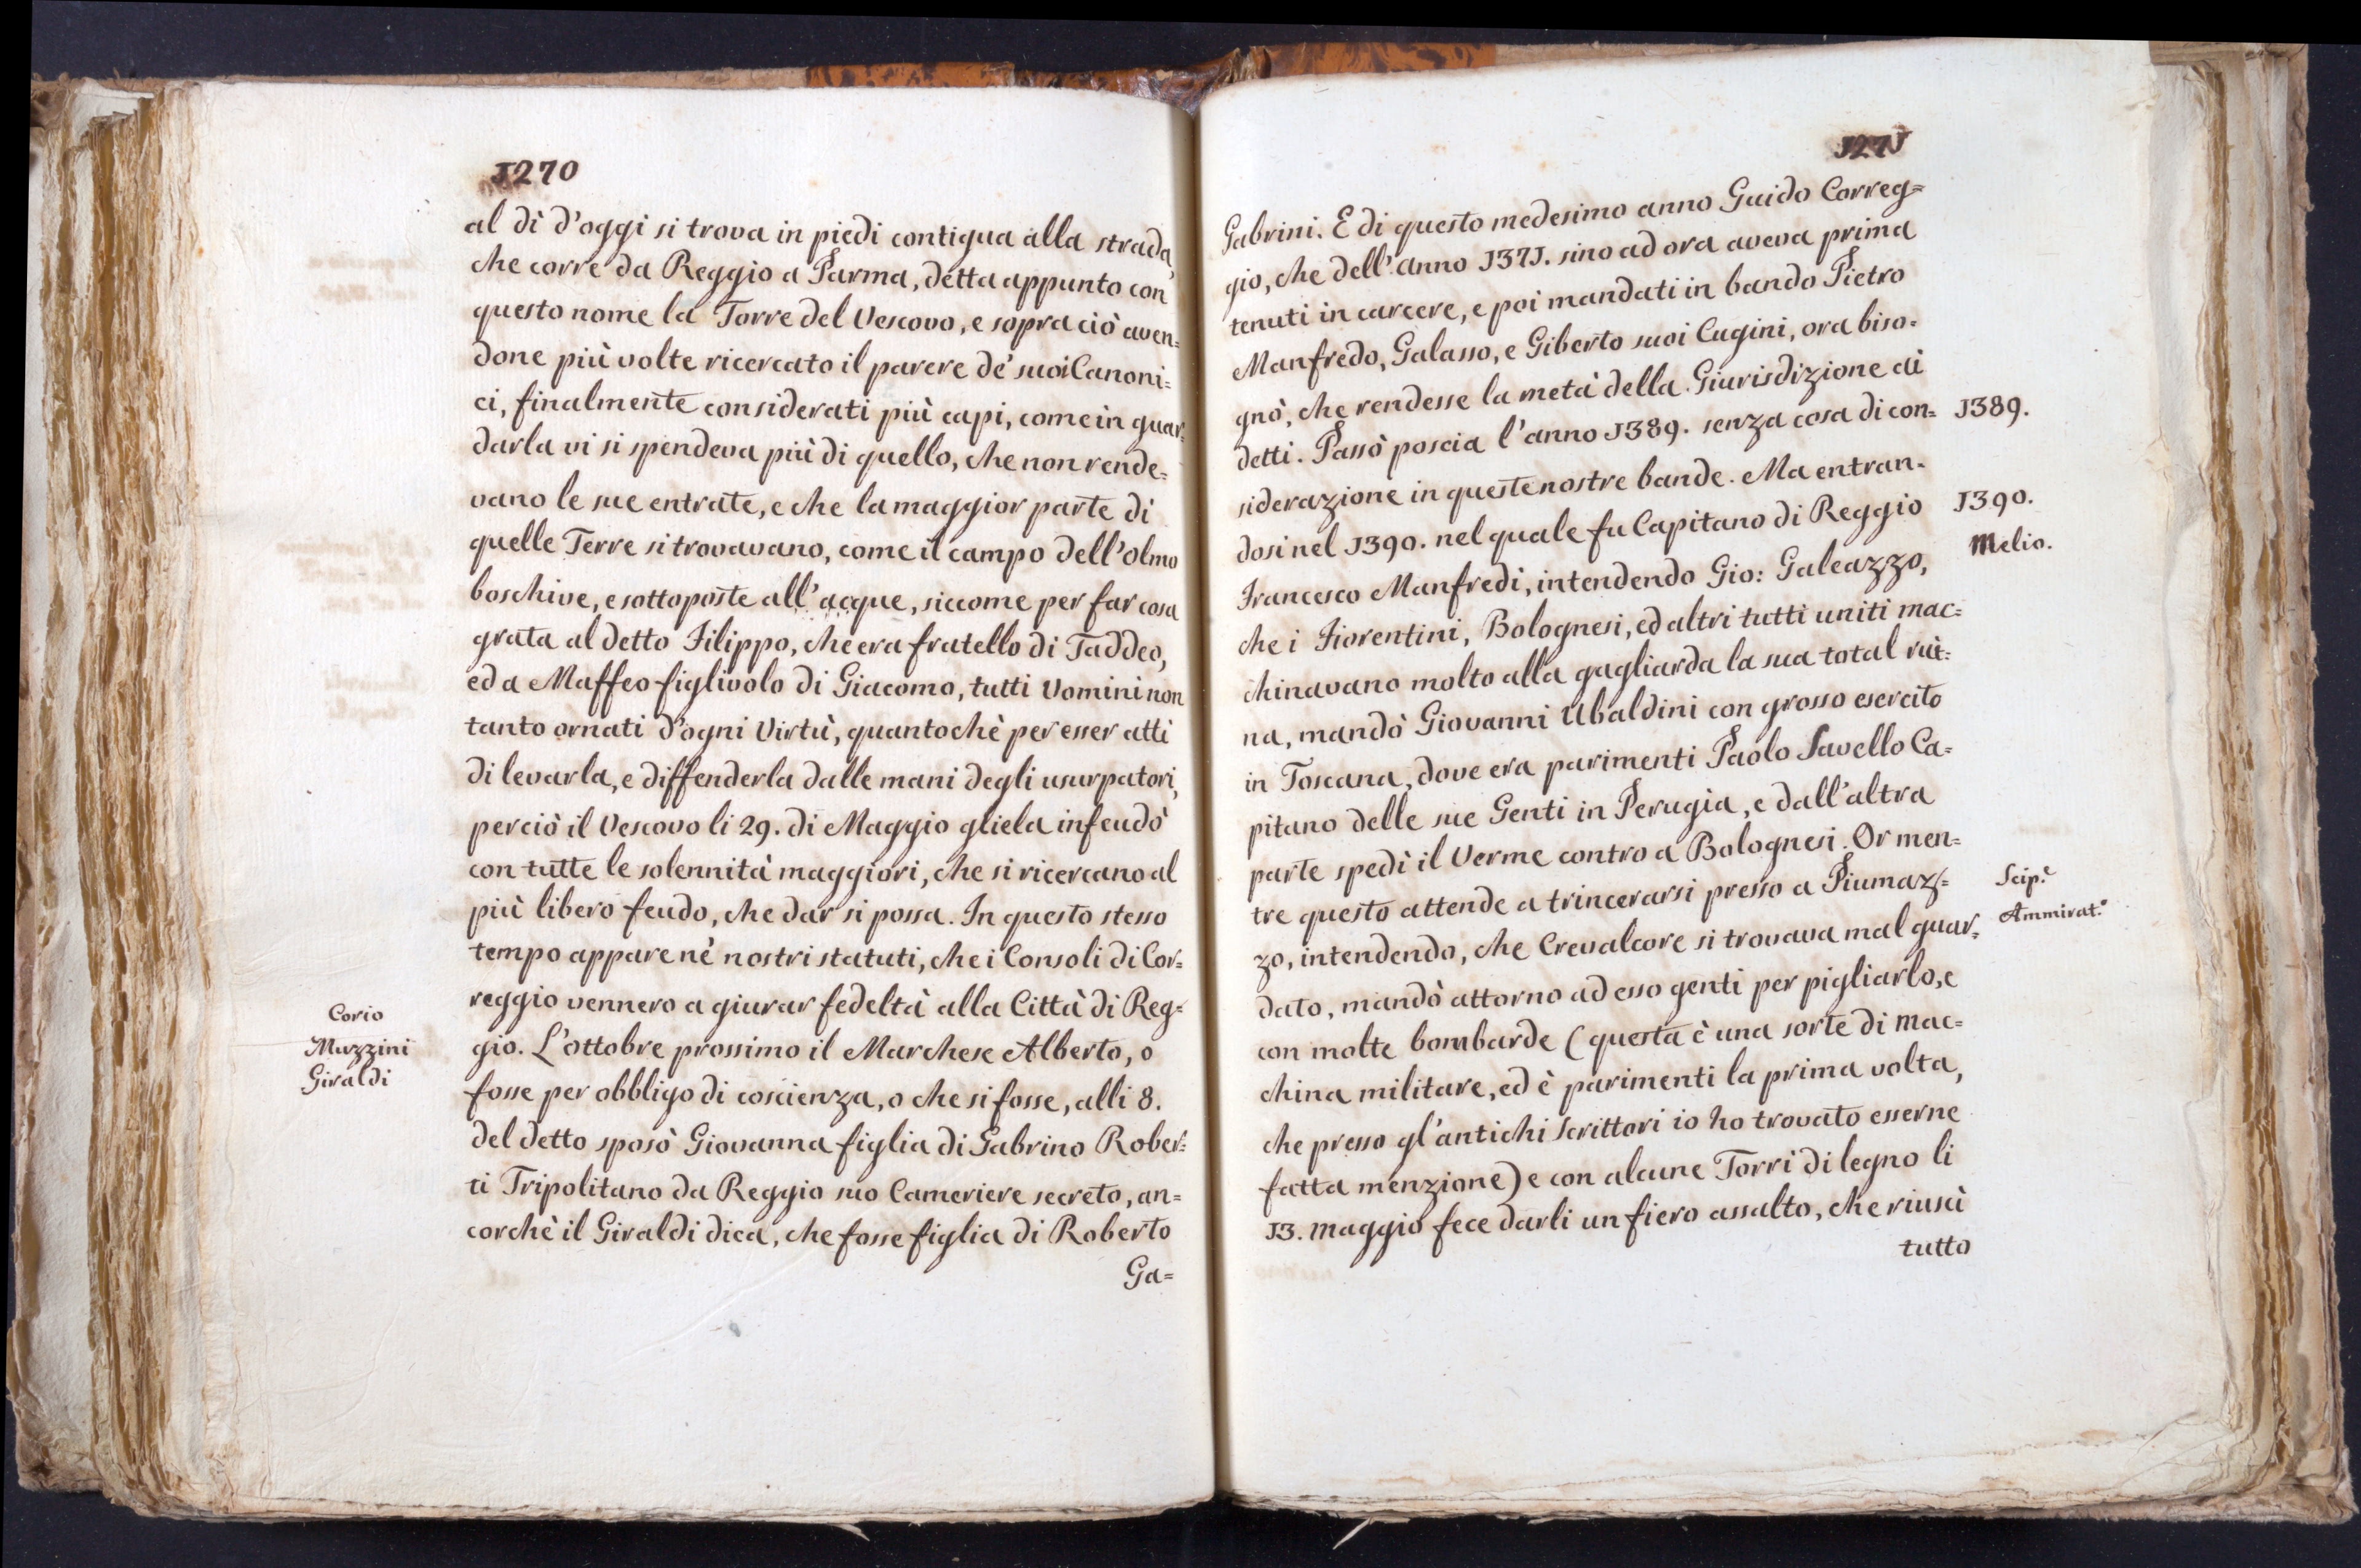 1270
al dì d'oggi si trova in piedi contigua alla strada,
che corre da Reggio a Parma, detta appunto con
questo nome la Torre del Vescovo, e sopra ciò aven=
done più volte ricercato il parere de' suoi Canoni=
ci, finalmente considerati più capi, come in guar=
darla vi si spendeva più di quello, che non rende=
vano le sue entrate, e che la maggior parte di
quelle Terre si trovavano, come il campo dell'olmo
boschive, e sottoposte all'acque, siccome per far cosa
grata al detto Filippo, che era fratello di Taddeo,
ed a Maffeo figlivolo di Giacomo, tutti Vomini non
tanto ornati d'ogni Virtù, quantochè per esser atti
di levarla, e diffenderla dalle mani degli usurpatori,
perciò il Vescovo li 29. di Maggio gliela infeudò
con tutte le solennità maggiori, che si ricercano al
più libero feudo, che dar si possa. In questo stesso
tempo appare nè nostri statuti, che i Consoli di Cor=
reggio vennero a giurar fedeltà alla Città di Reg=
gio. L'ottobre prossimo il Marchese Alberto, o
fosse per obbligo di coscienza, o che si fosse, alli 8.
del detto sposò Giovanna figlia di Gabrino Rober=
ti Tripolitano da Reggio suo Cameriere secreto, an=
corchè il Giraldi dica, che fosse figlia di Roberto
Ga=
Corio
Muzzini
Giraldi
1271
Gabrini. E di questo medesimo anno Guido Correg=
gio, che dell'anno 1371. sino ad ora aveva prima
tenuti in carcere, e poi mandati in bando Pietro
Manfredo, Galasso, e Giberto suoi Cugini, ora biso=
gnò, che rendesse la metà della Giurisdizione ai
detti. Passò poscia l'anno 1389. senza cosa di con=
siderazione in queste nostre bande. Ma entran=
dosi nel 1390. nel quale fu Capitano di Reggio
Francesco Manfredi, intendendo Gio: Galeazzo,
che i Fiorentini, Bolognesi, ed altri tutti uniti mac=
chinavano molto alla gagliarda la sua total rui=
na, mandò Giovanni Ubaldini con grosso esercito
in Toscana, dove era parimenti Paolo Savello Ca=
pitano delle sue Genti in Perugia, e dall'altra
parte spedì il Verme contro a Bolognesi. Or men=
tre questo attende a trincerarsi presso a Piumaz=
zo, intendendo, che Crevalcore si trovava mal guar=
dato, mandò attorno ad esso genti per pigliarlo, e
con molte bombarde (questa è una sorte di mac=
china militare, ed è parimenti la prima volta,
che presso gl'antichi scrittori io ho trovato esserne
fatta menzione) e con alcune Torri di legno li
13. maggio fece darli un fiero assalto, che riuscì
tutto
1389.
1390.
Melio.
Scip.e
Ammirat.o